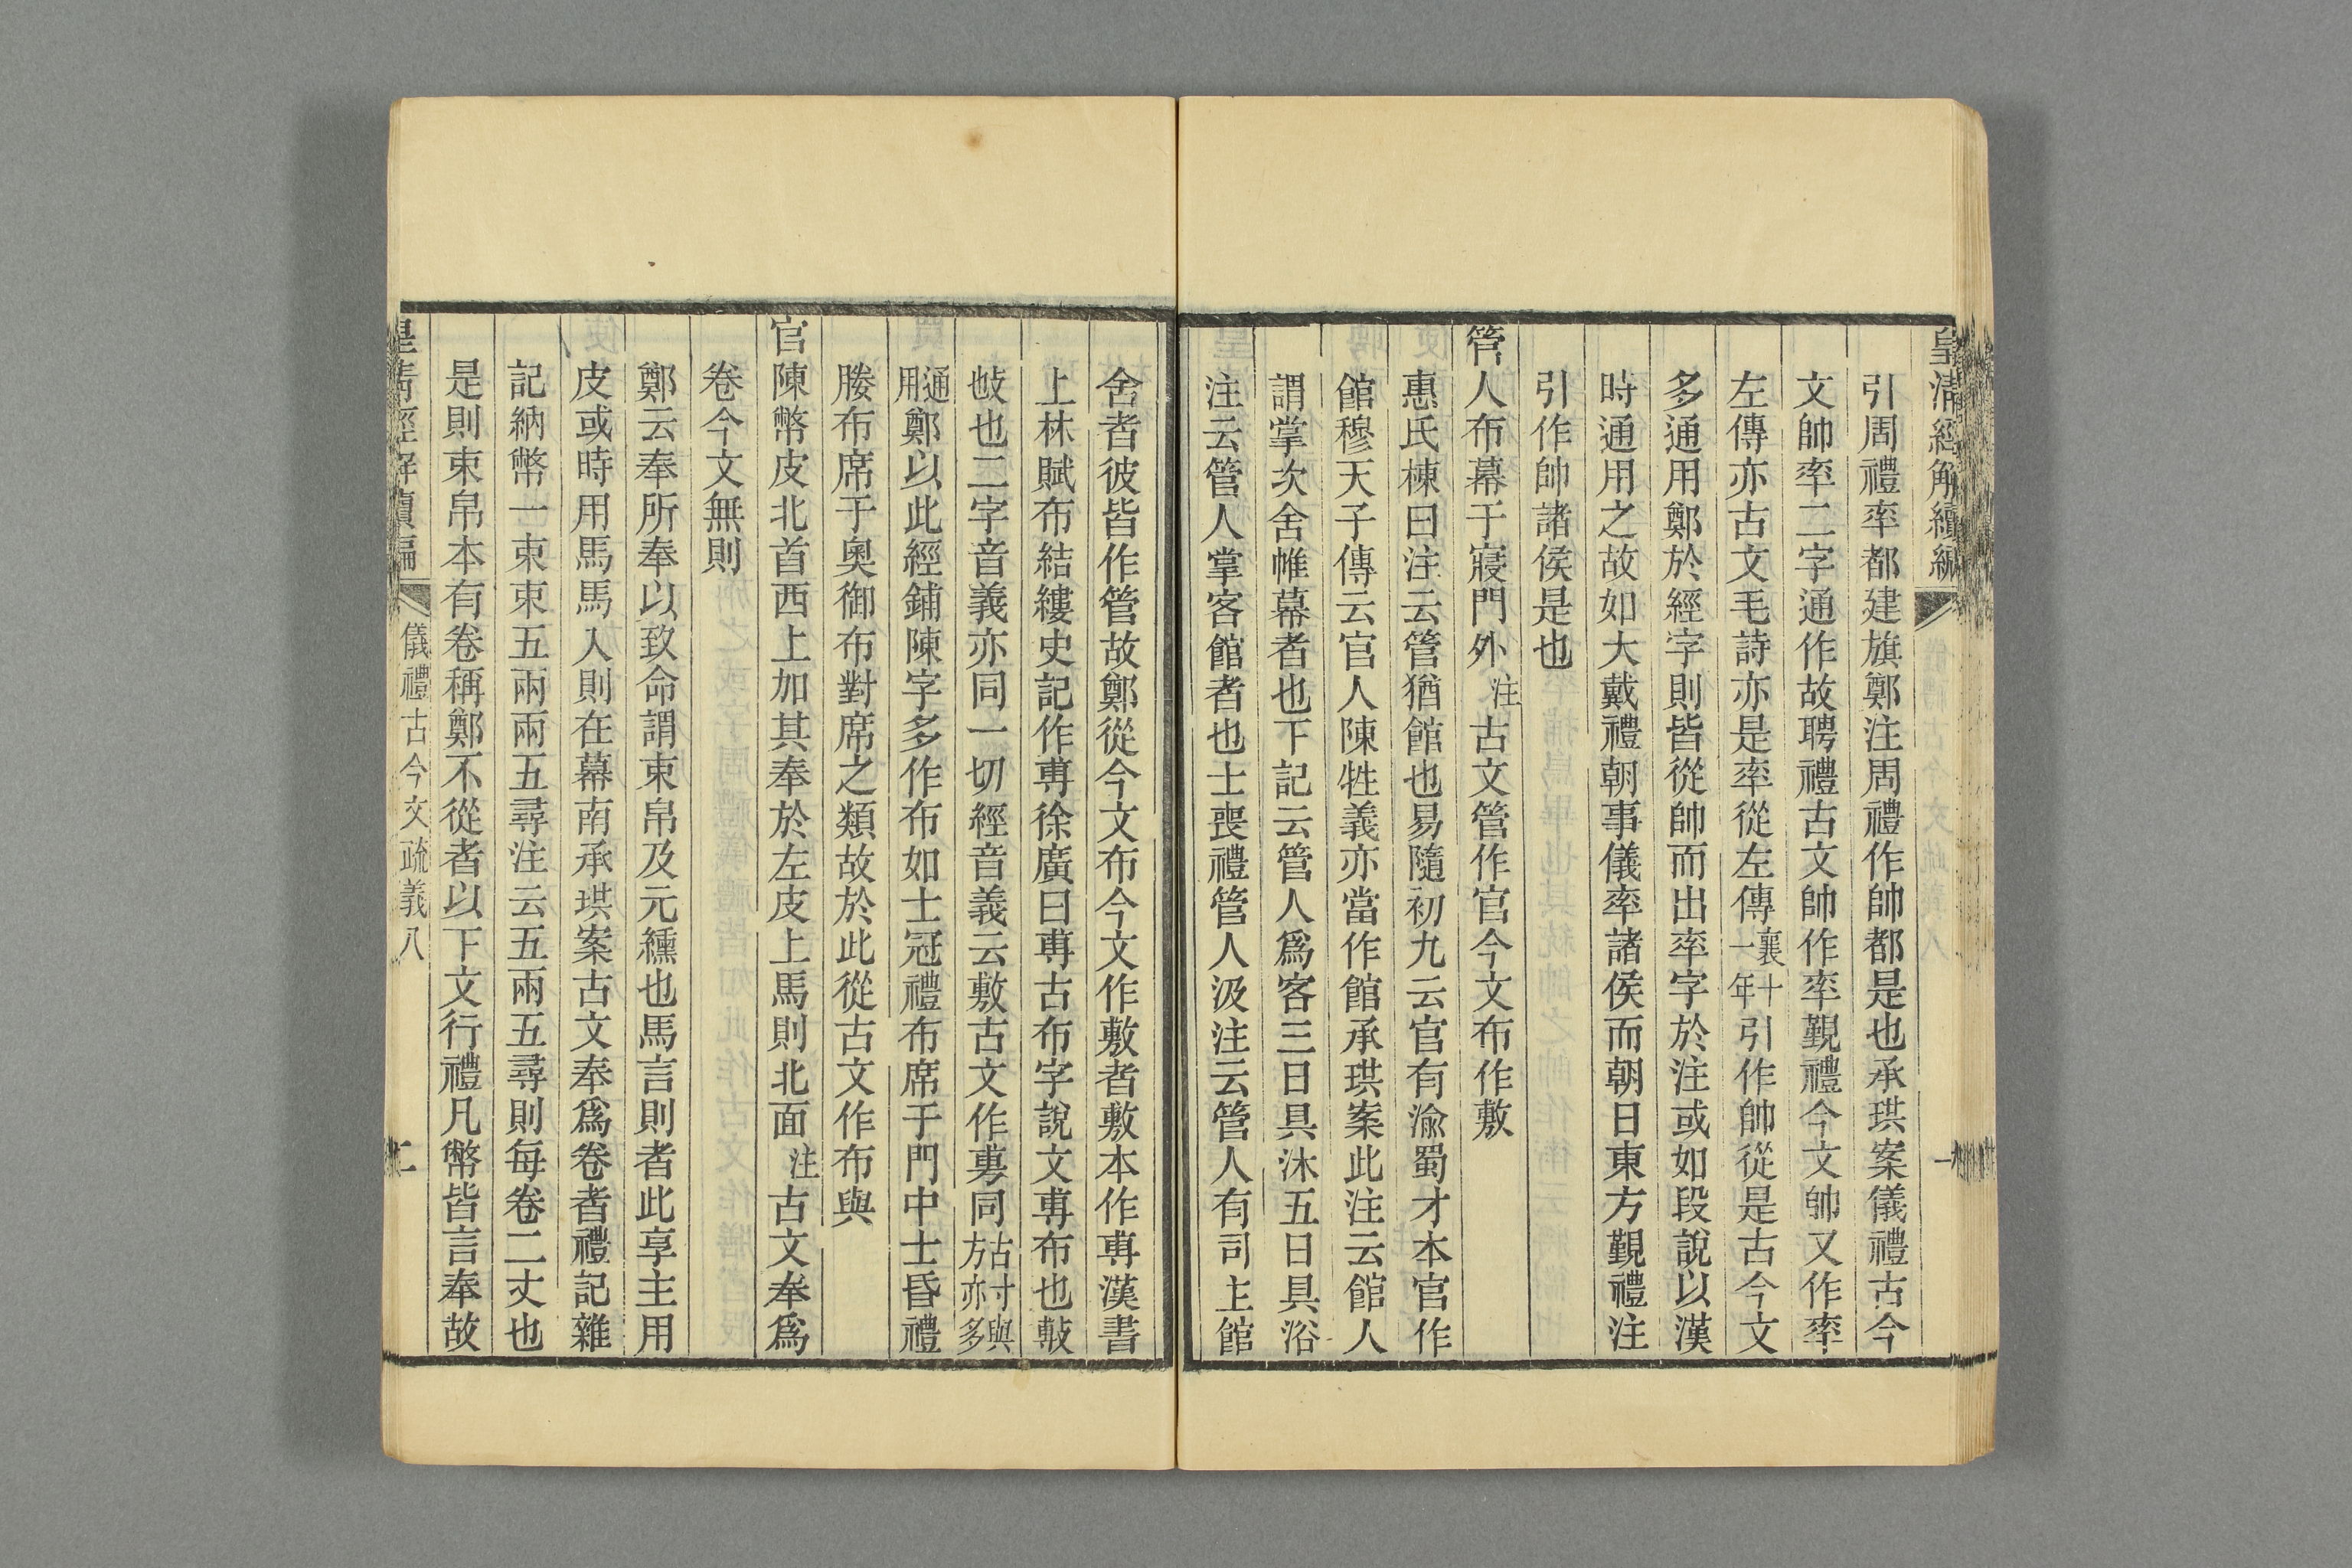 皇清經解續編
一
引周禮率都建旗鄭注周禮作帥都是也承珙案儀禮古今
文帥率二字通作故聘禮古文帥作率覲禮今文帥又作率
左傳亦古文毛詩亦是率從左傳襄十一年引作帥從是古今文
多通用鄭於經字則皆從帥而出率字於注或如段說以漢
時通用之故如大戴禮朝事儀率諸侯而朝日東方覲禮注
引作帥諸侯是也
管人布幕于寢門外注古文管作官今文布作敷
惠氏棟曰注云管猶館也易隨初九云官有渝蜀才本官作
館穆天子傳云官人陳牲義亦當作館承珙案此注云館人
謂掌次舍帷幕者也下記云管人爲客三日具沐五日具浴
注云管人掌客館者也士喪禮管人汲注云管人有司主館
舍者彼皆作管故鄭從今文布今文作敷者敷本作尃漢書
上林賦布結縷史記作尃徐廣曰尃古布字說文尃布也敷
㪔也二字音義亦同一切經音義云敷古文作尃同古寸與方亦多
通用鄭以此經鋪陳字多作布如士冠禮布席于門中士昏禮
媵布席于奧御布對席之類故於此從古文作布與
官陳幣皮北首西上加其奉於左皮上馬則北面注古文奉爲
卷今文無則
鄭云奉所奉以致命謂束帛及元纁也馬言則者此享主用
皮或時用馬馬入則在幕南承珙案古文奉爲卷者禮記雜
記納幣一束束五兩兩五尋注云五兩五尋則每卷二丈也
是則束帛本有卷稱鄭不從者以下文行禮凡幣皆言奉故
皇清經解續編
儀禮古今文疏義八
二